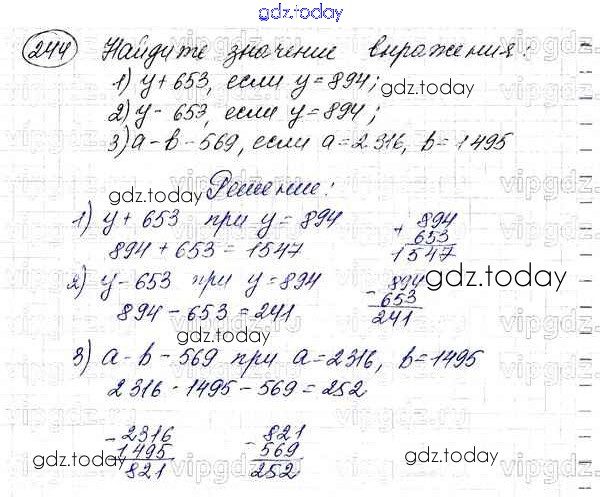 gdz.today
244 Найдите значение выражения:
1) y + 653, если y = 894;
gdz.today
2) y - 653, если y = 894;
3) a - b - 569, если a = 2316, b = 1495
gdz.today
Решение:
1) y + 653 при y = 894
894 + 653 = 1547
+ 894
653
1547
gdz.today
2) y - 653 при y = 894
894 - 653 = 241
- 894
653
241
3) a - b - 569 при a = 2316, b = 1495
2316 - 1495 - 569 = 252
- 2316
1495
821
- 821
569
252
gdz.today
gdz.today